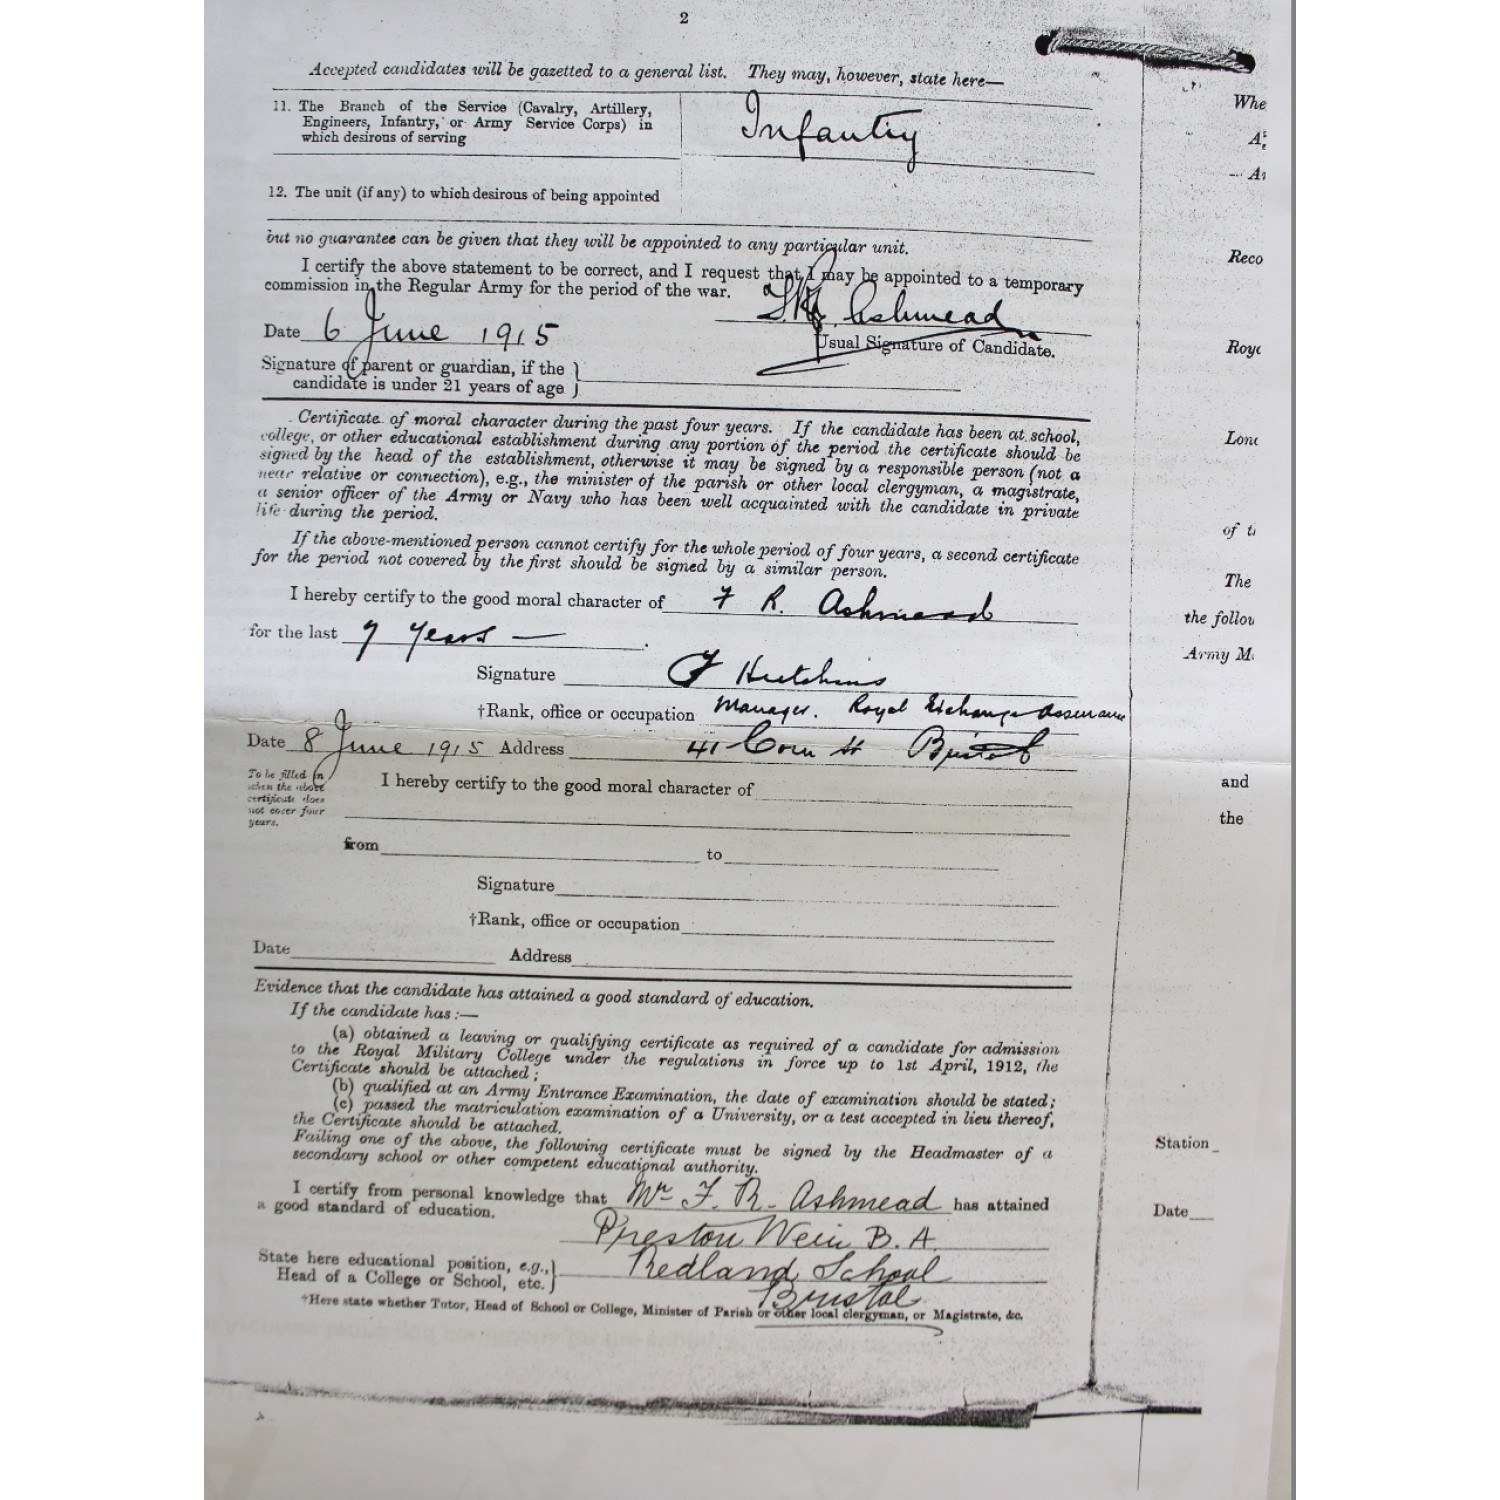 2
Accepted candidates will be gazetted to a general list. They may, however, state here—
11. The Branch of the Service (Cavalry, Artillery,
Engineers, Infantry, or Army Service Corps) in
which desirous of serving
Infantry
12. The unit (if any) to which desirous of being appointed
but no guarantee can be given that they will be appointed to any particular unit.
I certify the above statement to be correct, and I request that I may be appointed to a temporary
commission in the Regular Army for the period of the war.
F.R. Ashmead
Date 6 June 1915
Usual Signature of Candidate.
Signature of parent or guardian, if the
candidate is under 21 years of age }
Certificate of moral character during the past four years. If the candidate has been at school,
college, or other educational establishment during any portion of the period the certificate should be
signed by the head of the establishment, otherwise it may be signed by a responsible person (not a
near relative or connection), e.g., the minister of the parish or other local clergyman, a magistrate,
a senior officer of the Army or Navy who has been well acquainted with the candidate in private
life during the period.
If the above-mentioned person cannot certify for the whole period of four years, a second certificate
for the period not covered by the first should be signed by a similar person.
I hereby certify to the good moral character of F R. Ashmead
for the last 7 years —.
Signature F Hutchins
†Rank, office or occupation Manager. Royal Exchange Assurance
Date 8 June 1915 Address 41 Corn St Bristol
To be filled in
when the above
certificate does
not cover four
years.
I hereby certify to the good moral character of
from to
Signature
†Rank, office or occupation
Date Address
Evidence that the candidate has attained a good standard of education.
If the candidate has:—
(a) obtained a leaving or qualifying certificate as required of a candidate for admission
to the Royal Military College under the regulations in force up to 1st April, 1912, the
Certificate should be attached;
(b) qualified at an Army Entrance Examination, the date of examination should be stated;
(c) passed the matriculation examination of a University, or a test accepted in lieu thereof,
the Certificate should be attached.
Failing one of the above, the following certificate must be signed by the Headmaster of a
secondary school or other competent educational authority.
I certify from personal knowledge that Mr F. R. Ashmead has attained
a good standard of education.
Preston Weir B.A.
State here educational position, e.g.,
Head of a College or School, etc. }
Redland School
Bristol
†Here state whether Tutor, Head of School or College, Minister of Parish or other local clergyman, or Magistrate, &c.
Whe
Reco
Roya
Lond
of t
The
the follow
Army M
and
the
Station
Date